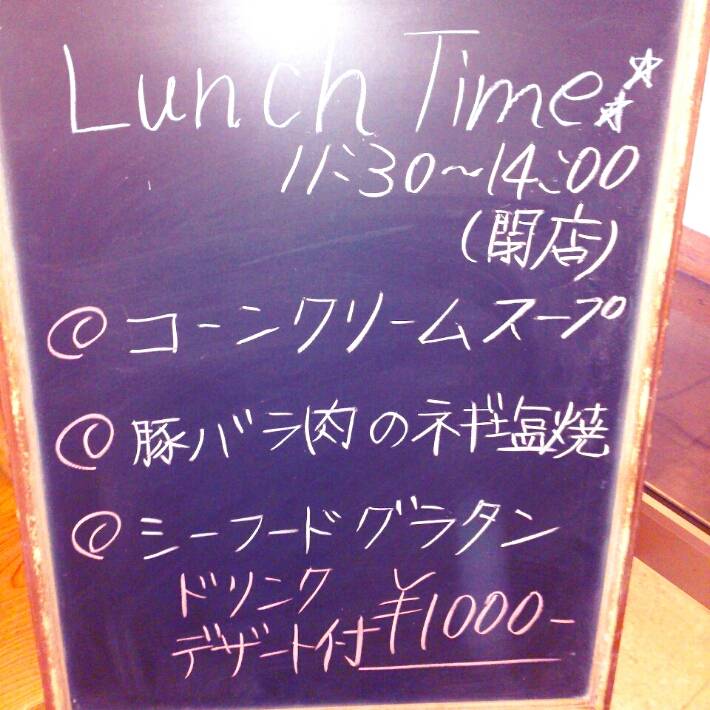 Lunch Time☆☆
11:30～14:00
(閉店)
◎コーンクリームスープ
◎豚バラ肉のネギ塩焼
◎シーフードグラタン
ドリンク
デザート付 ¥1000-